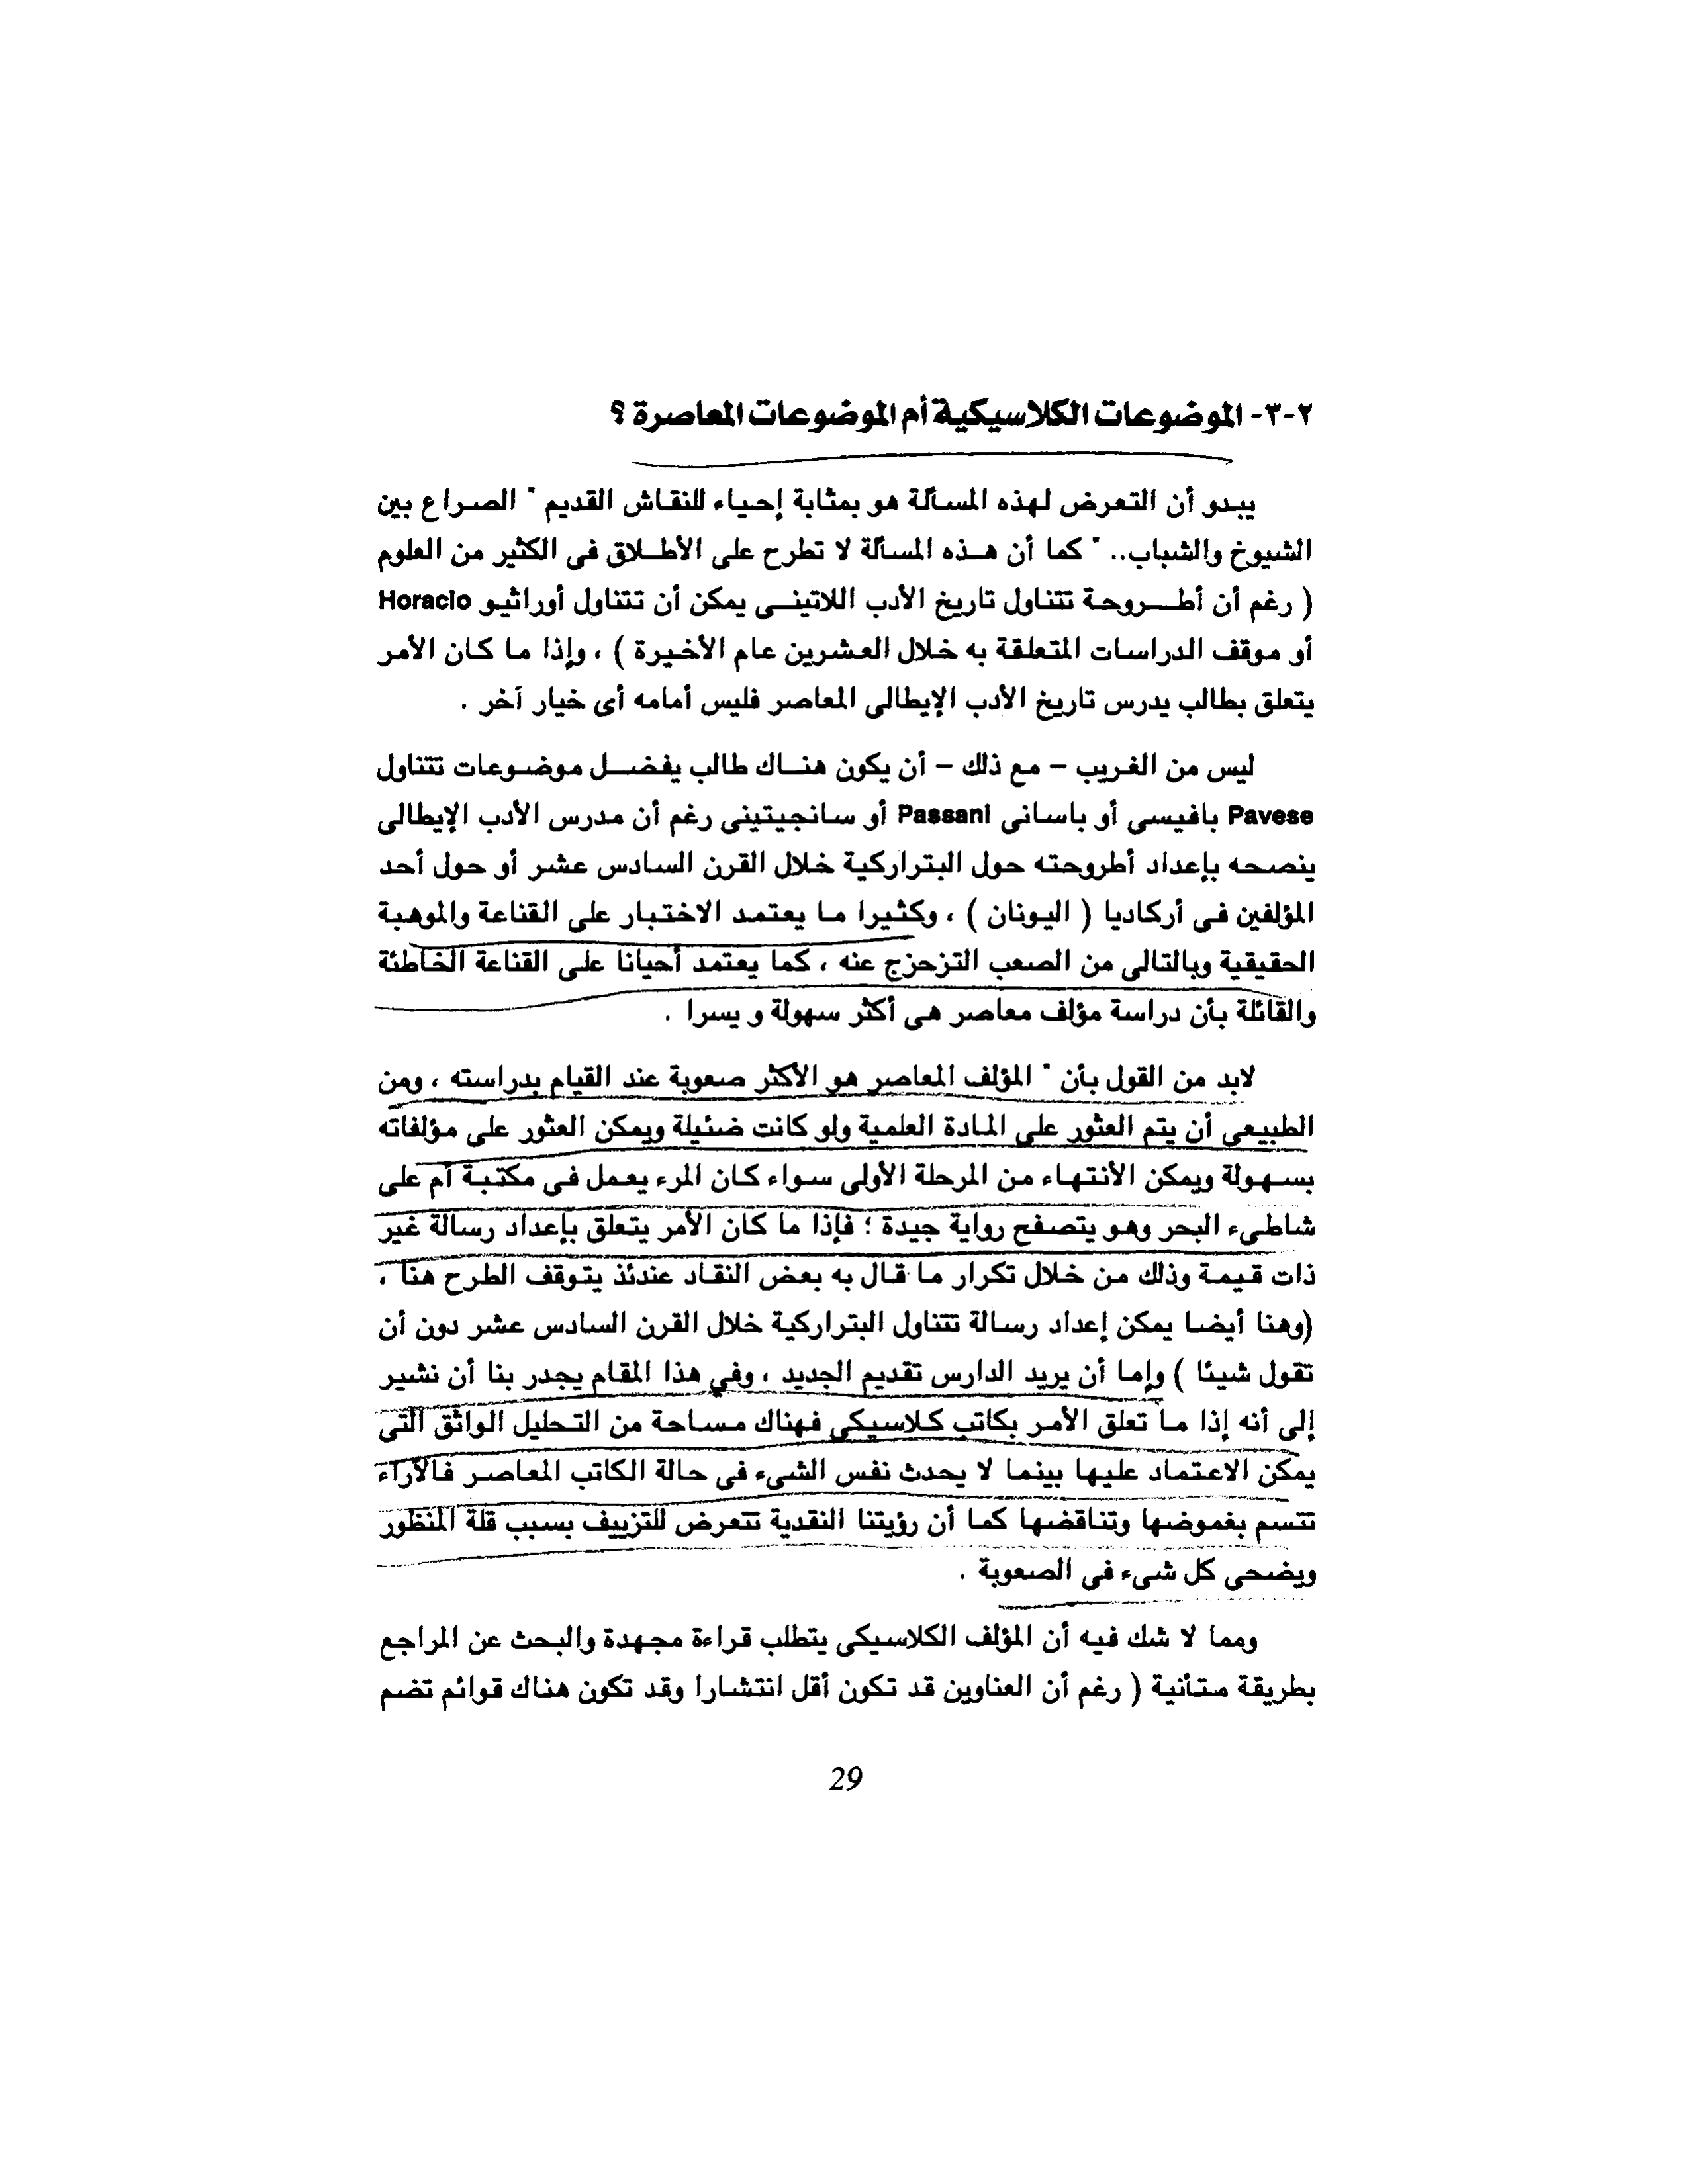 ٢-٣- الموضوعات الكلاسيكية أم الموضوعات المعاصرة ؟
يبدو أن التعرض لهذه المسألة هو بمثابة إحياء للنقاش القديم " الصراع بين
الشيوخ والشباب.. " كما أن هذه المسألة لا تطرح على الأطلاق فى الكثير من العلوم
( رغم أن أطروحة تتناول تاريخ الأدب اللاتينى يمكن أن تتناول أوراثيو Horacio
أو موقف الدراسات المتعلقة به خلال العشرين عام الأخيرة ) ، وإذا ما كان الأمر
يتعلق بطالب يدرس تاريخ الأدب الإيطالى المعاصر فليس أمامه أى خيار آخر .
ليس من الغريب – مع ذلك – أن يكون هناك طالب يفضل موضوعات تتناول
Pavese بافيسى أو باسانى Passani أو سانجيتينى رغم أن مدرس الأدب الإيطالى
ينصحه بإعداد أطروحته حول البتراركية خلال القرن السادس عشر أو حول أحد
المؤلفين فى أركاديا ( اليونان ) ، وكثيرا ما يعتمد الاختبار على القناعة والموهبة
الحقيقية وبالتالى من الصعب التزحزح عنه ، كما يعتمد أحيانا على القناعة الخاطئة
والقائلة بأن دراسة مؤلف معاصر هى أكثر سهولة و يسرا .
لابد من القول بأن " المؤلف المعاصر هو الأكثر صعوبة عند القيام بدراسته ، ومن
الطبيعى أن يتم العثور على المادة العلمية ولو كانت ضئيلة ويمكن العثور على مؤلفاته
بسهولة ويمكن الأنتهاء من المرحلة الأولى سواء كان المرء يعمل فى مكتبة أم على
شاطىء البحر وهو يتصفح رواية جيدة ؛ فإذا ما كان الأمر يتعلق بإعداد رسالة غير
ذات قيمة وذلك من خلال تكرار ما قال به بعض النقاد عندئذ يتوقف الطرح هنا ،
(وهنا أيضا يمكن إعداد رسالة تتناول البتراركية خلال القرن السادس عشر دون أن
تقول شيئا ) وإما أن يريد الدارس تقديم الجديد ، وفي هذا المقام يجدر بنا أن نشير
إلى أنه إذا ما تعلق الأمر بكاتب كلاسيكى فهناك مساحة من التحليل الواثق التى
يمكن الاعتماد عليها بينما لا يحدث نفس الشىء فى حالة الكاتب المعاصر فالآراء
تتسم بغموضها وتناقضها كما أن رؤيتنا النقدية تتعرض للتزييف بسبب قلة المنظور
ويضحى كل شىء فى الصعوبة .
ومما لا شك فيه أن المؤلف الكلاسيكى يتطلب قراءة مجهدة والبحث عن المراجع
بطريقة متأنية ( رغم أن العناوين قد تكون أقل انتشارا وقد تكون هناك قوائم تضم
29